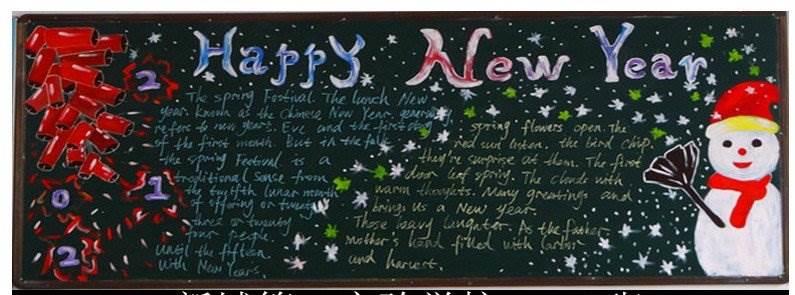 Happy New Year
2
0
1
2
The spring Festival. The lunch New
year. known as the Chinese New Year. generally
refers to new years. Eve and the first day
of the first month. But in the folk
the spring Festival is a
traditional sense from
the twelfth lunar month
of offering or twenty
three or twenty
four people.
Until the fifteen
With New Years.
spring flowers open. The
red sun listen. the bird chip.
they're surprise at them. The first
door leaf spring. The clouds with
warm thoughts. Many greetings and
brings us a New year.
Those heavy laughter. As the father
mother's hand filled with labor
and harvest.